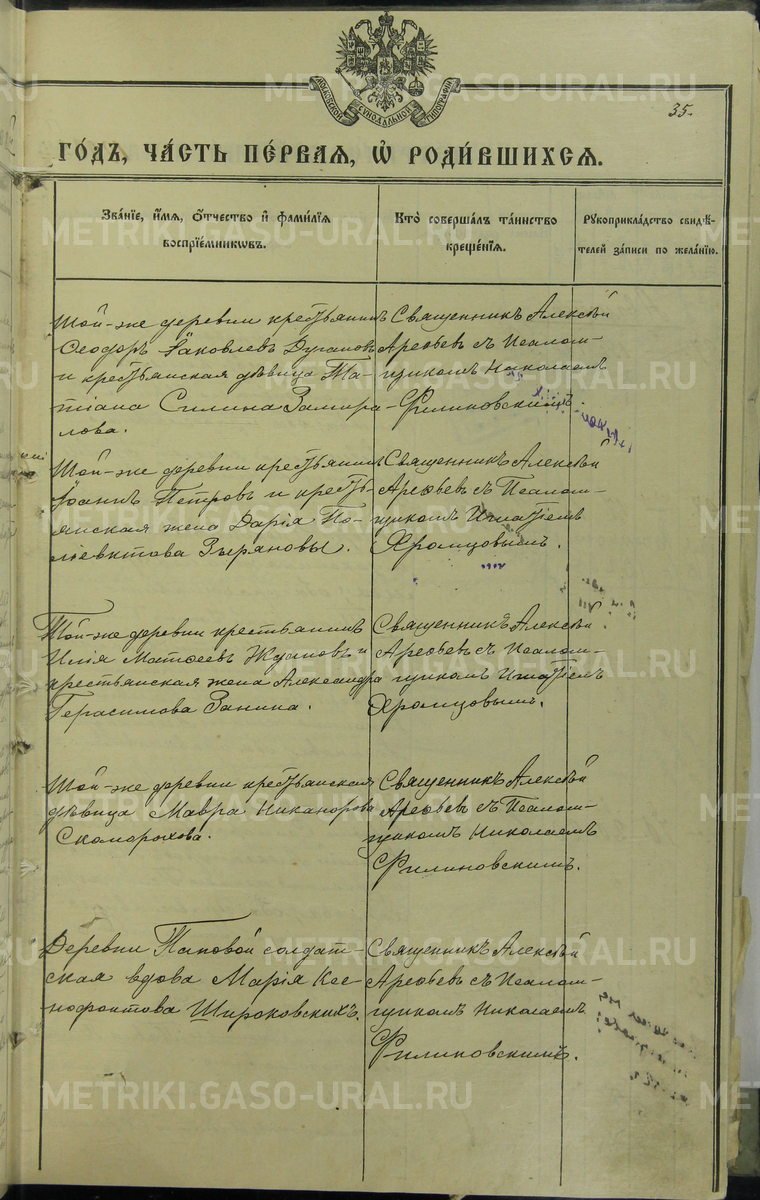 МОСКОВСКОЙ СѴНОДАЛЬНОЙ ТИПОГРАФІИ
35.
ГО́ДЪ, ЧА́СТЬ ПЕ́РВАЯ, Ѽ РОДИ́ВШИХСЯ.
Зва́нїе, и҆́мя, ѻ҆́тчество и҆ фами́лїя
воспрїе́мникѡвъ.
Кто̀ соверша́лъ та́инство
креще́нїя.
Рꙋкоприкла́дство свидѣ́-
телей за́писи по жела́нїю.
Той-же деревни крестьянинъ
Ѳеодоръ Іаковлевъ
и крестьянская дѣвица Та-
тіана Силина Замира-
лова.
Священникъ Алексѣй
Арефьевъ съ Псалом-
щикомъ Николаемъ
Филиновскимъ
Той-же деревни крестьянинъ
Іоаннъ Петровъ и кресть-
янская жена Дарія По-
лієвктова Зыряновы.
Священникъ Алексѣй
Арефьевъ съ Псалом-
щикомъ Игнатіемъ
Хромцовымъ.
Той-же деревни крестьянинъ
Илія Матѳеевъ Ждановъ и
крестьянская жена Александра
Герасимова Занина.
Священникъ Алексѣй
Арефьевъ съ Псалом-
щикомъ Игнатіемъ
Хромцовымъ.
Той-же деревни крестьянская
дѣвица Мавра Никанорова
Скоморохова.
Священникъ Алексѣй
Арефьевъ съ Псалом-
щикомъ Николаемъ
Филиновскимъ.
Деревни Паповой солдат-
ская вдова Марія Ксе-
нофонтова Широковскихъ.
Священникъ Алексѣй
Арефьевъ съ Псалом-
щикомъ Николаемъ
Филиновскимъ.
METRIKI.GASO-URAL.RU